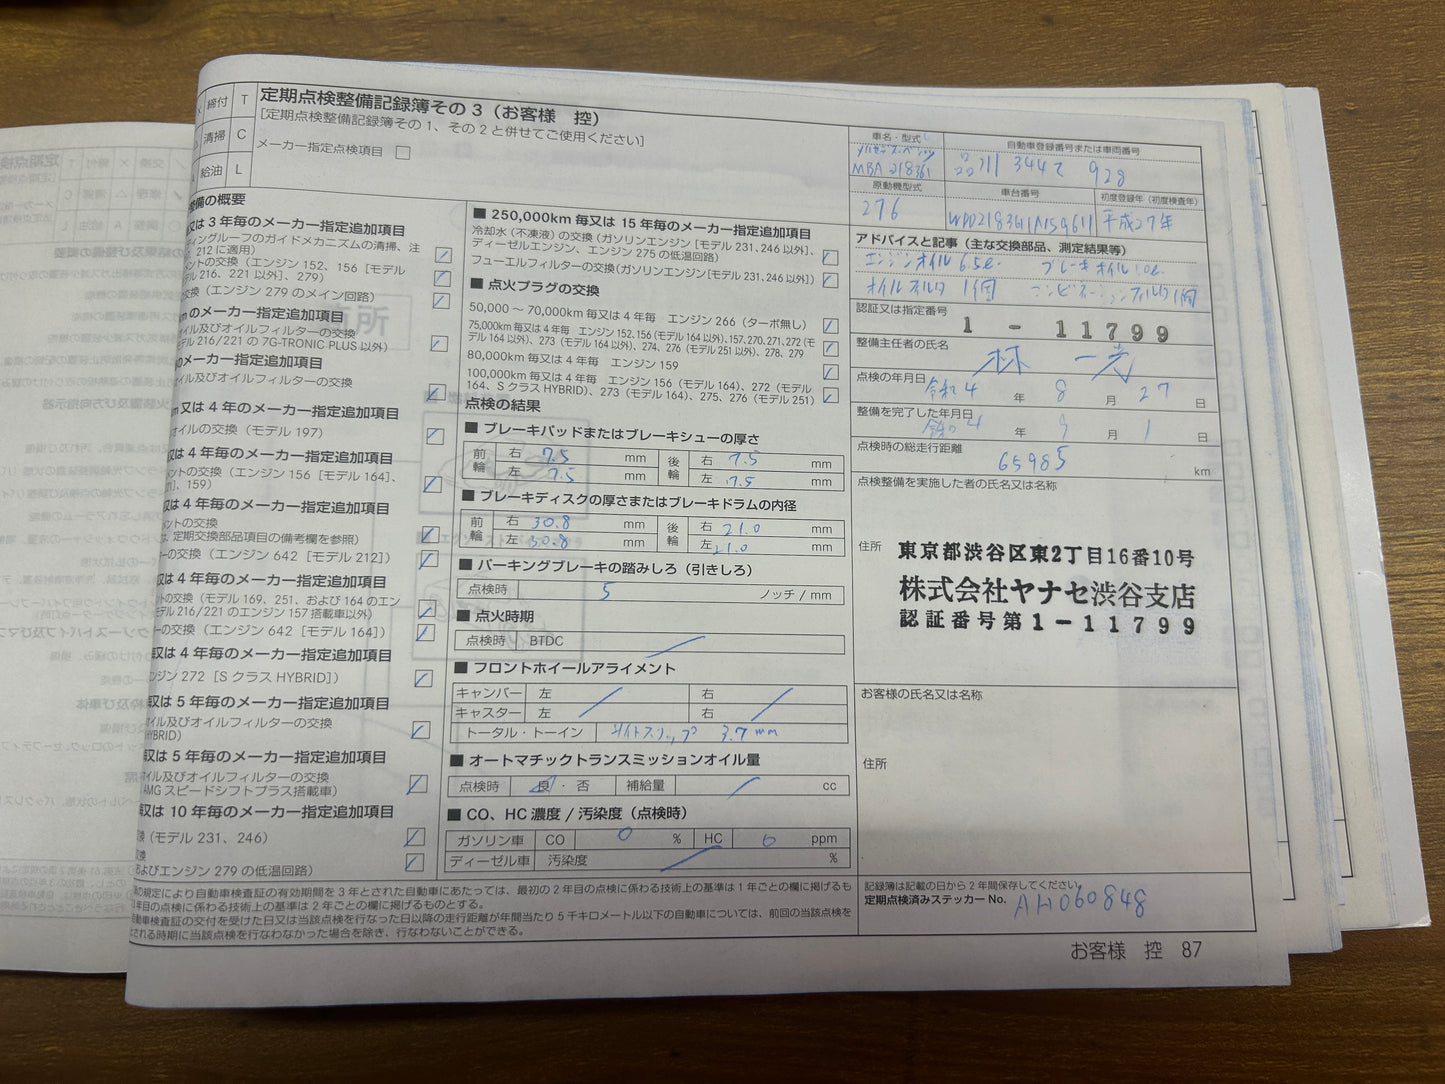 締付 T
清掃 C
給油 L
定期点検整備記録簿その 3（お客様　控）
[定期点検整備記録簿その 1、その 2 と併せてご使用ください]
メーカー指定点検項目
整備の概要
又は 3 年毎のメーカー指定追加項目
ディングルーフのガイドメカニズムの清掃、注
、212 に適用）
メントの交換（エンジン 152、156［モデル
デル 216、221 以外］、279）
交換（エンジン 279 のメイン回路）
mのメーカー指定追加項目
イル及びオイルフィルターの交換
モデル 216/221 の 7G-TRONIC PLUS 以外）
のメーカー指定追加項目
イル及びオイルフィルターの交換
m 又は 4 年毎のメーカー指定追加項目
オイルの交換（モデル 197）
又は 4 年毎のメーカー指定追加項目
メントの交換（エンジン 156［モデル 164］、
］、159）
又は 4 年毎のメーカー指定追加項目
ントの交換
は、定期交換部品項目の備考欄を参照）
ーの交換（エンジン 642［モデル 212］）
又は 4 年毎のメーカー指定追加項目
トの交換（モデル 169、251、および 164 のエン
モデル 216/221 のエンジン 157 搭載車以外）
ーの交換（エンジン 642［モデル 164］）
又は 4 年毎のメーカー指定追加項目
ンジン 272［S クラス HYBRID］）
又は 5 年毎のメーカー指定追加項目
イル及びオイルフィルターの交換
HYBRID）
又は 5 年毎のメーカー指定追加項目
オイル及びオイルフィルターの交換
AMG スピードシフトプラス搭載車）
又は 10 年毎のメーカー指定追加項目
換（モデル 231、246）
換
およびエンジン 279 の低温回路）
■ 250,000km 毎又は 15 年毎のメーカー指定追加項目
冷却水（不凍液）の交換（ガソリンエンジン［モデル 231、246 以外］、
ディーゼルエンジン、エンジン 275 の低温回路）
フューエルフィルターの交換（ガソリンエンジン［モデル 231、246 以外］）
■ 点火プラグの交換
50,000 ～ 70,000km 毎又は 4 年毎　エンジン 266（ターボ無し）
75,000km 毎又は 4 年毎　エンジン 152、156（モデル 164 以外）、157、270、271、272（モ
デル 164 以外）、273（モデル 164 以外）、274、276（モデル 251 以外）、278、279
80,000km 毎又は 4 年毎　エンジン 159
100,000km 毎又は 4 年毎　エンジン 156（モデル 164）、272（モデル
164、S クラス HYBRID）、273（モデル 164）、275、276（モデル 251）
点検の結果
■ ブレーキパッドまたはブレーキシューの厚さ
前輪 右 7.5 mm 後輪 右 7.5 mm
左 7.5 mm 左 7.5 mm
■ ブレーキディスクの厚さまたはブレーキドラムの内径
前輪 右 30.8 mm 後輪 右 21.0 mm
左 30.8 mm 左 21.0 mm
■ パーキングブレーキの踏みしろ（引きしろ）
点検時 5 ノッチ / mm
■ 点火時期
点検時 BTDC
■ フロントホイールアライメント
キャンバー 左 右
キャスター 左 右
トータル・トーイン サイドスリップ 3.7 mm
■ オートマチックトランスミッションオイル量
点検時 良 ・ 否 補給量 cc
■ CO、HC 濃度 / 汚染度（点検時）
ガソリン車 CO 0 % HC 0 ppm
ディーゼル車 汚染度 %
車名・型式
メルセデス・ベンツ
MBA 218361
自動車登録番号または車両番号
311 3442 928
原動機型式
276
車台番号
WDD2183611N159611
初度登録年（初度検査年）
平成27年
アドバイスと記事（主な交換部品、測定結果等）
エンジンオイル 6.5ℓ ブレーキオイル 1.0ℓ
オイルフィルタ 1個 コンビネーションフィルタ 1個
認証又は指定番号
1 - 11799
整備主任者の氏名
林 一光
点検の年月日
令和 4 年 8 月 27 日
整備を完了した年月日
令和 4 年 9 月 1 日
点検時の総走行距離
65985 km
点検整備を実施した者の氏名又は名称
住所
東京都渋谷区東2丁目16番10号
株式会社ヤナセ渋谷支店
認証番号第1-11799
お客様の氏名又は名称
住所
の規定により自動車検査証の有効期間を 3 年とされた自動車にあたっては、最初の 2 年目の点検に係わる技術上の基準は 1 年ごとの欄に掲げるも
年目の点検に係わる技術上の基準は 2 年ごとの欄に掲げるものとする。
動車検査証の交付を受けた日又は当該点検を行なった日以降の走行距離が年間当たり 5 千キロメートル以下の自動車については、前回の当該点検を
とされる時期に当該点検を行なわなかった場合を除き、行なわないことができる。
記録簿は記載の日から 2 年間保存してください。
定期点検済みステッカー No. AH060848
お客様　控　87